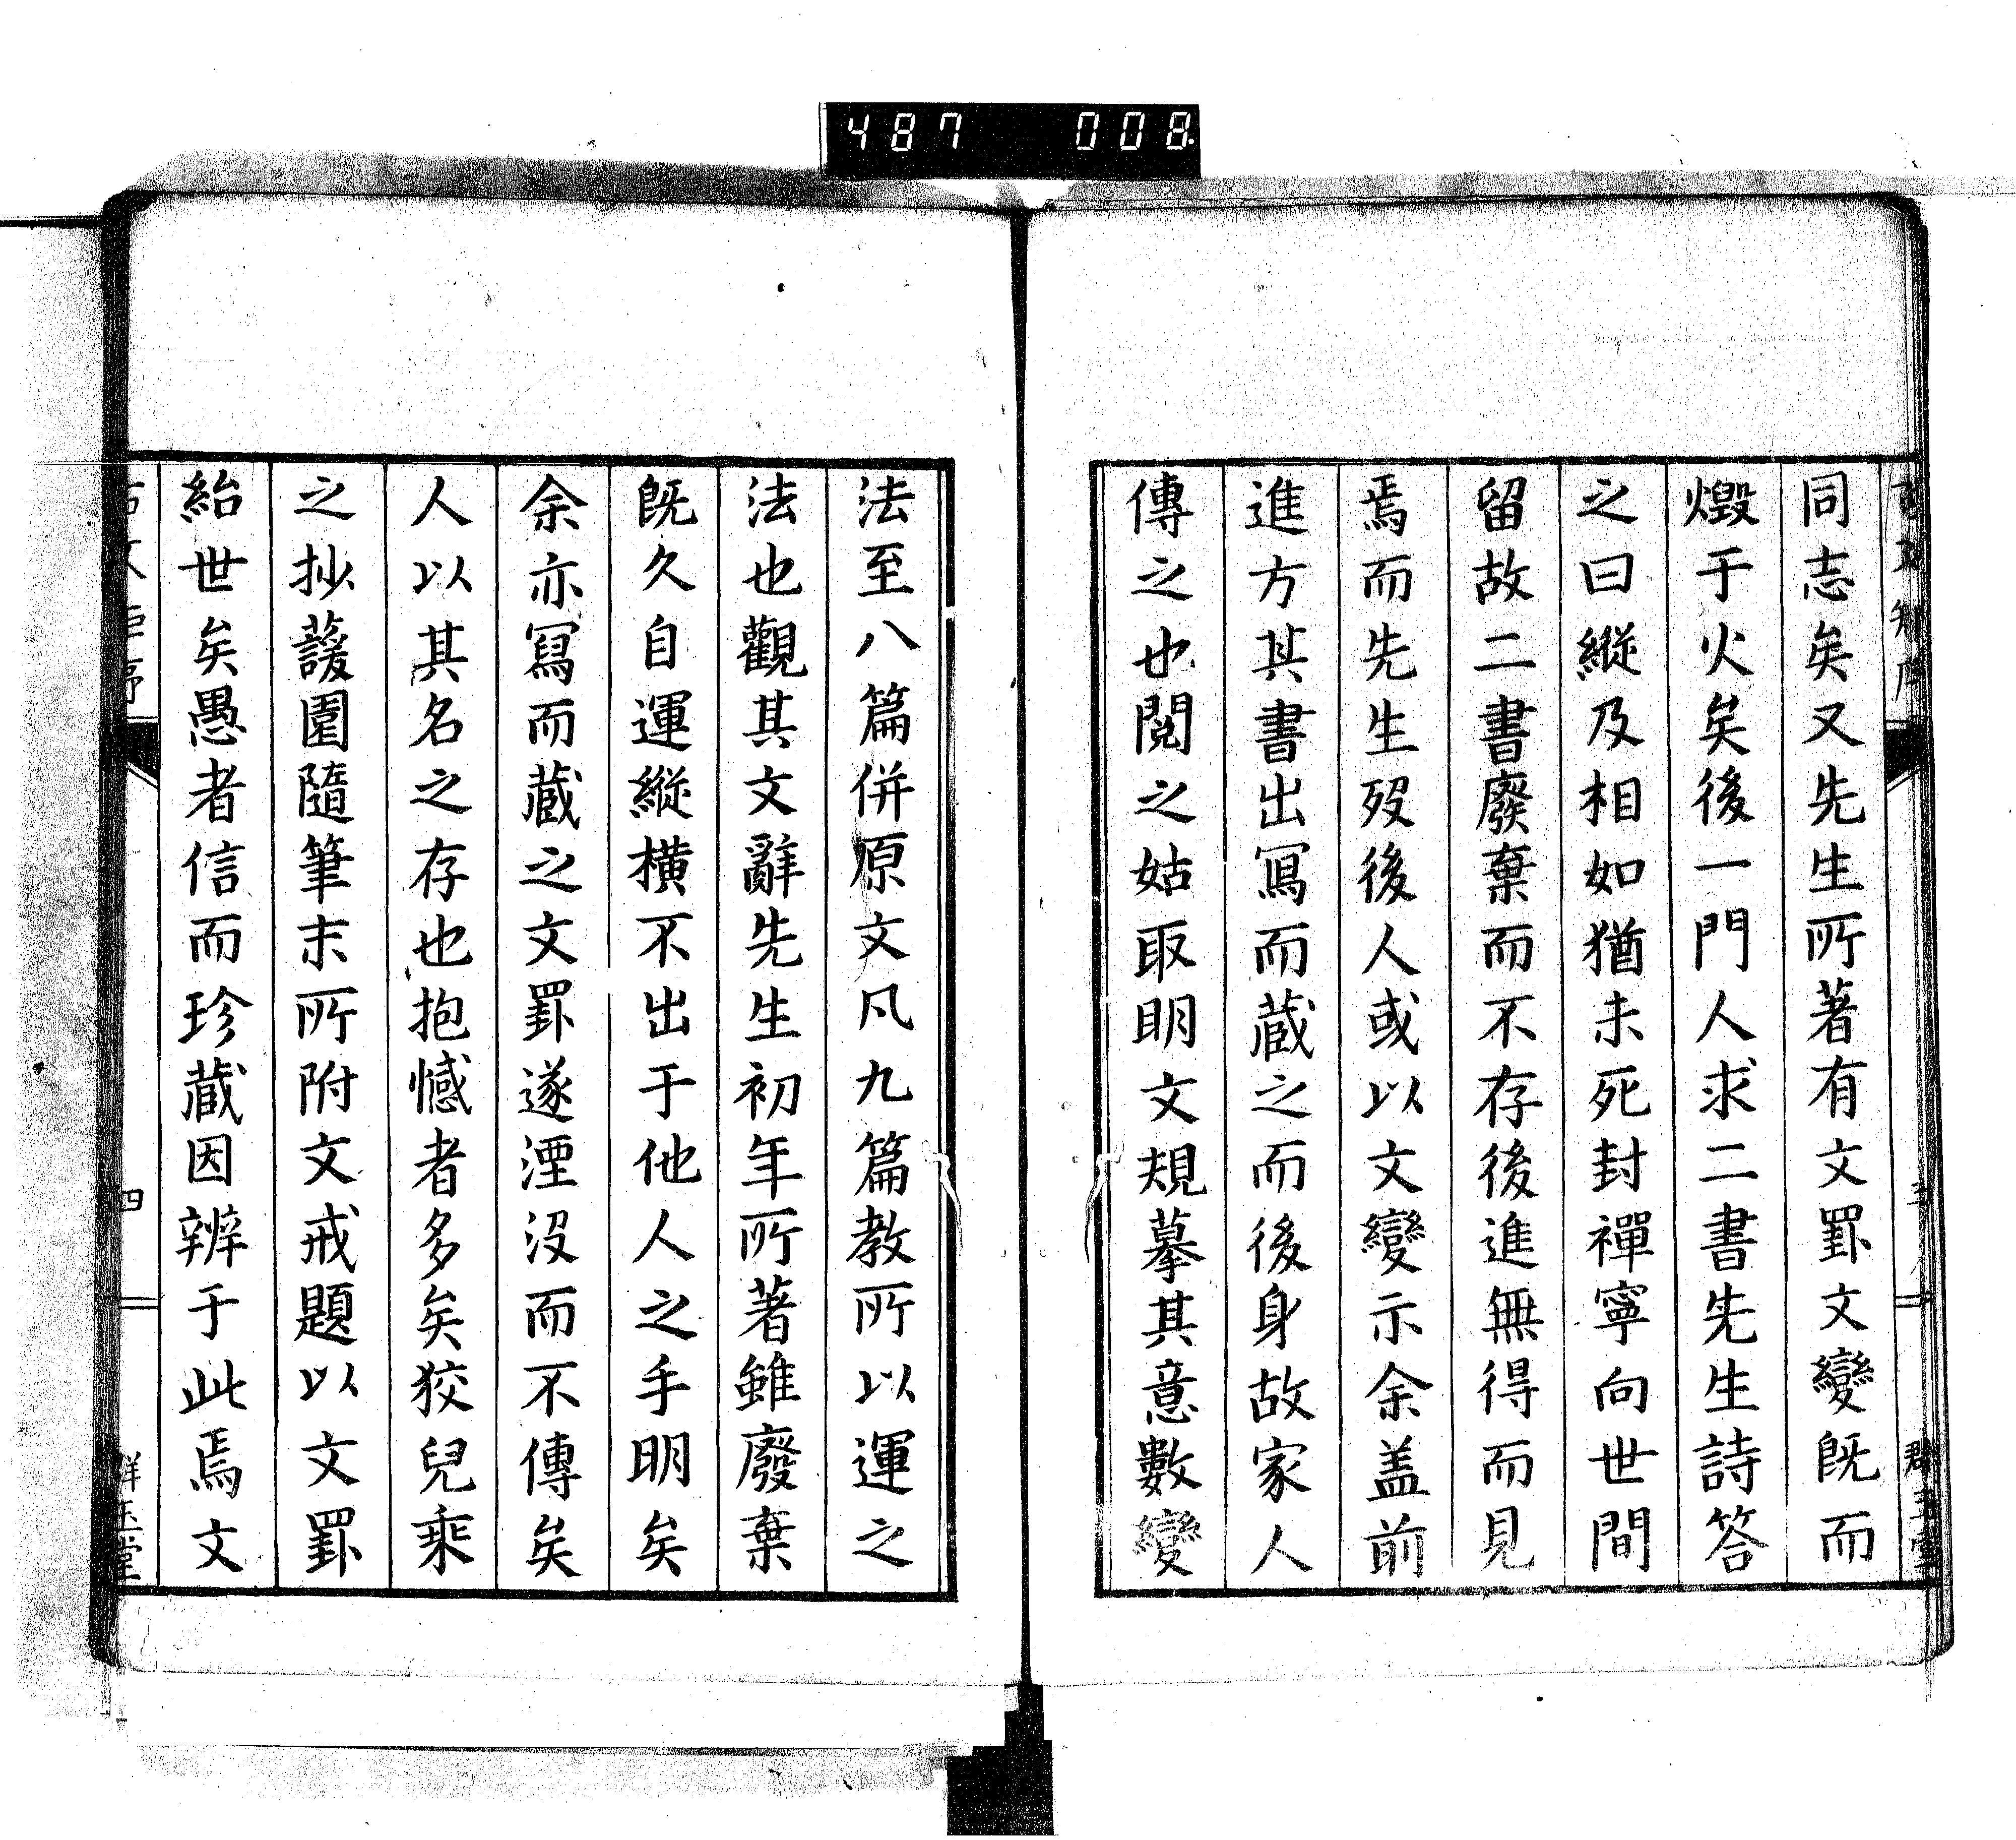 487 008
同志矣又先生所著有文罫文變既而
燬于火矣後一門人求二書先生詩答
之曰縱及相如猶未死封禪寧向世間
留故二書廢棄而不存後進無得而見
焉而先生歿後人或以文變示余盖前
進方其書出寫而蔵之而後身故家人
傳之也閲之姑取明文規摹其意數變
法至八篇併原文凡九篇教所以運之
法也觀其文辭先生初年所著雖廢棄
既久自運縱橫不出于他人之手明矣
余亦寫而蔵之文罫遂湮沒而不傳矣
人以其名之存也抱憾者多矣狡兒乘
之抄蘐園隨筆末所附文戒題以文罫
紿世矣愚者信而珍蔵因辨于此焉文
四
群玉堂